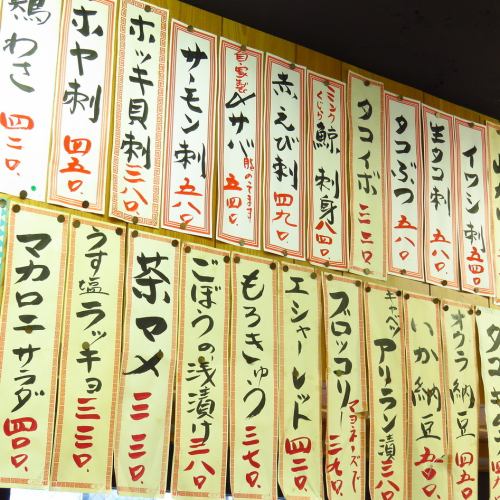 鶏わさ 四二〇.
ホヤ刺 四五〇.
ホッキ貝刺 三八〇.
サーモン刺 五八〇.
自家製 〆サバ 五四〇.
赤えび刺 四九〇.
ミンク くじら 鯨刺身 八四〇.
タコイボ 三二〇.
タコぶつ 五八〇.
生タコ刺 五八〇.
イワシ刺 五四〇.
マカロニサラダ 四〇〇.
うす塩ラッキョ 三三〇.
茶マメ 三三〇.
ごぼうの浅漬け 三八〇.
もろきゅう 三七〇.
エシャーレッド 四二〇.
ブロッコリー マヨネーズで 三九〇.
キャベツ アリラン漬 三八〇.
いか納豆 五四〇.
オクラ納豆 四五〇.